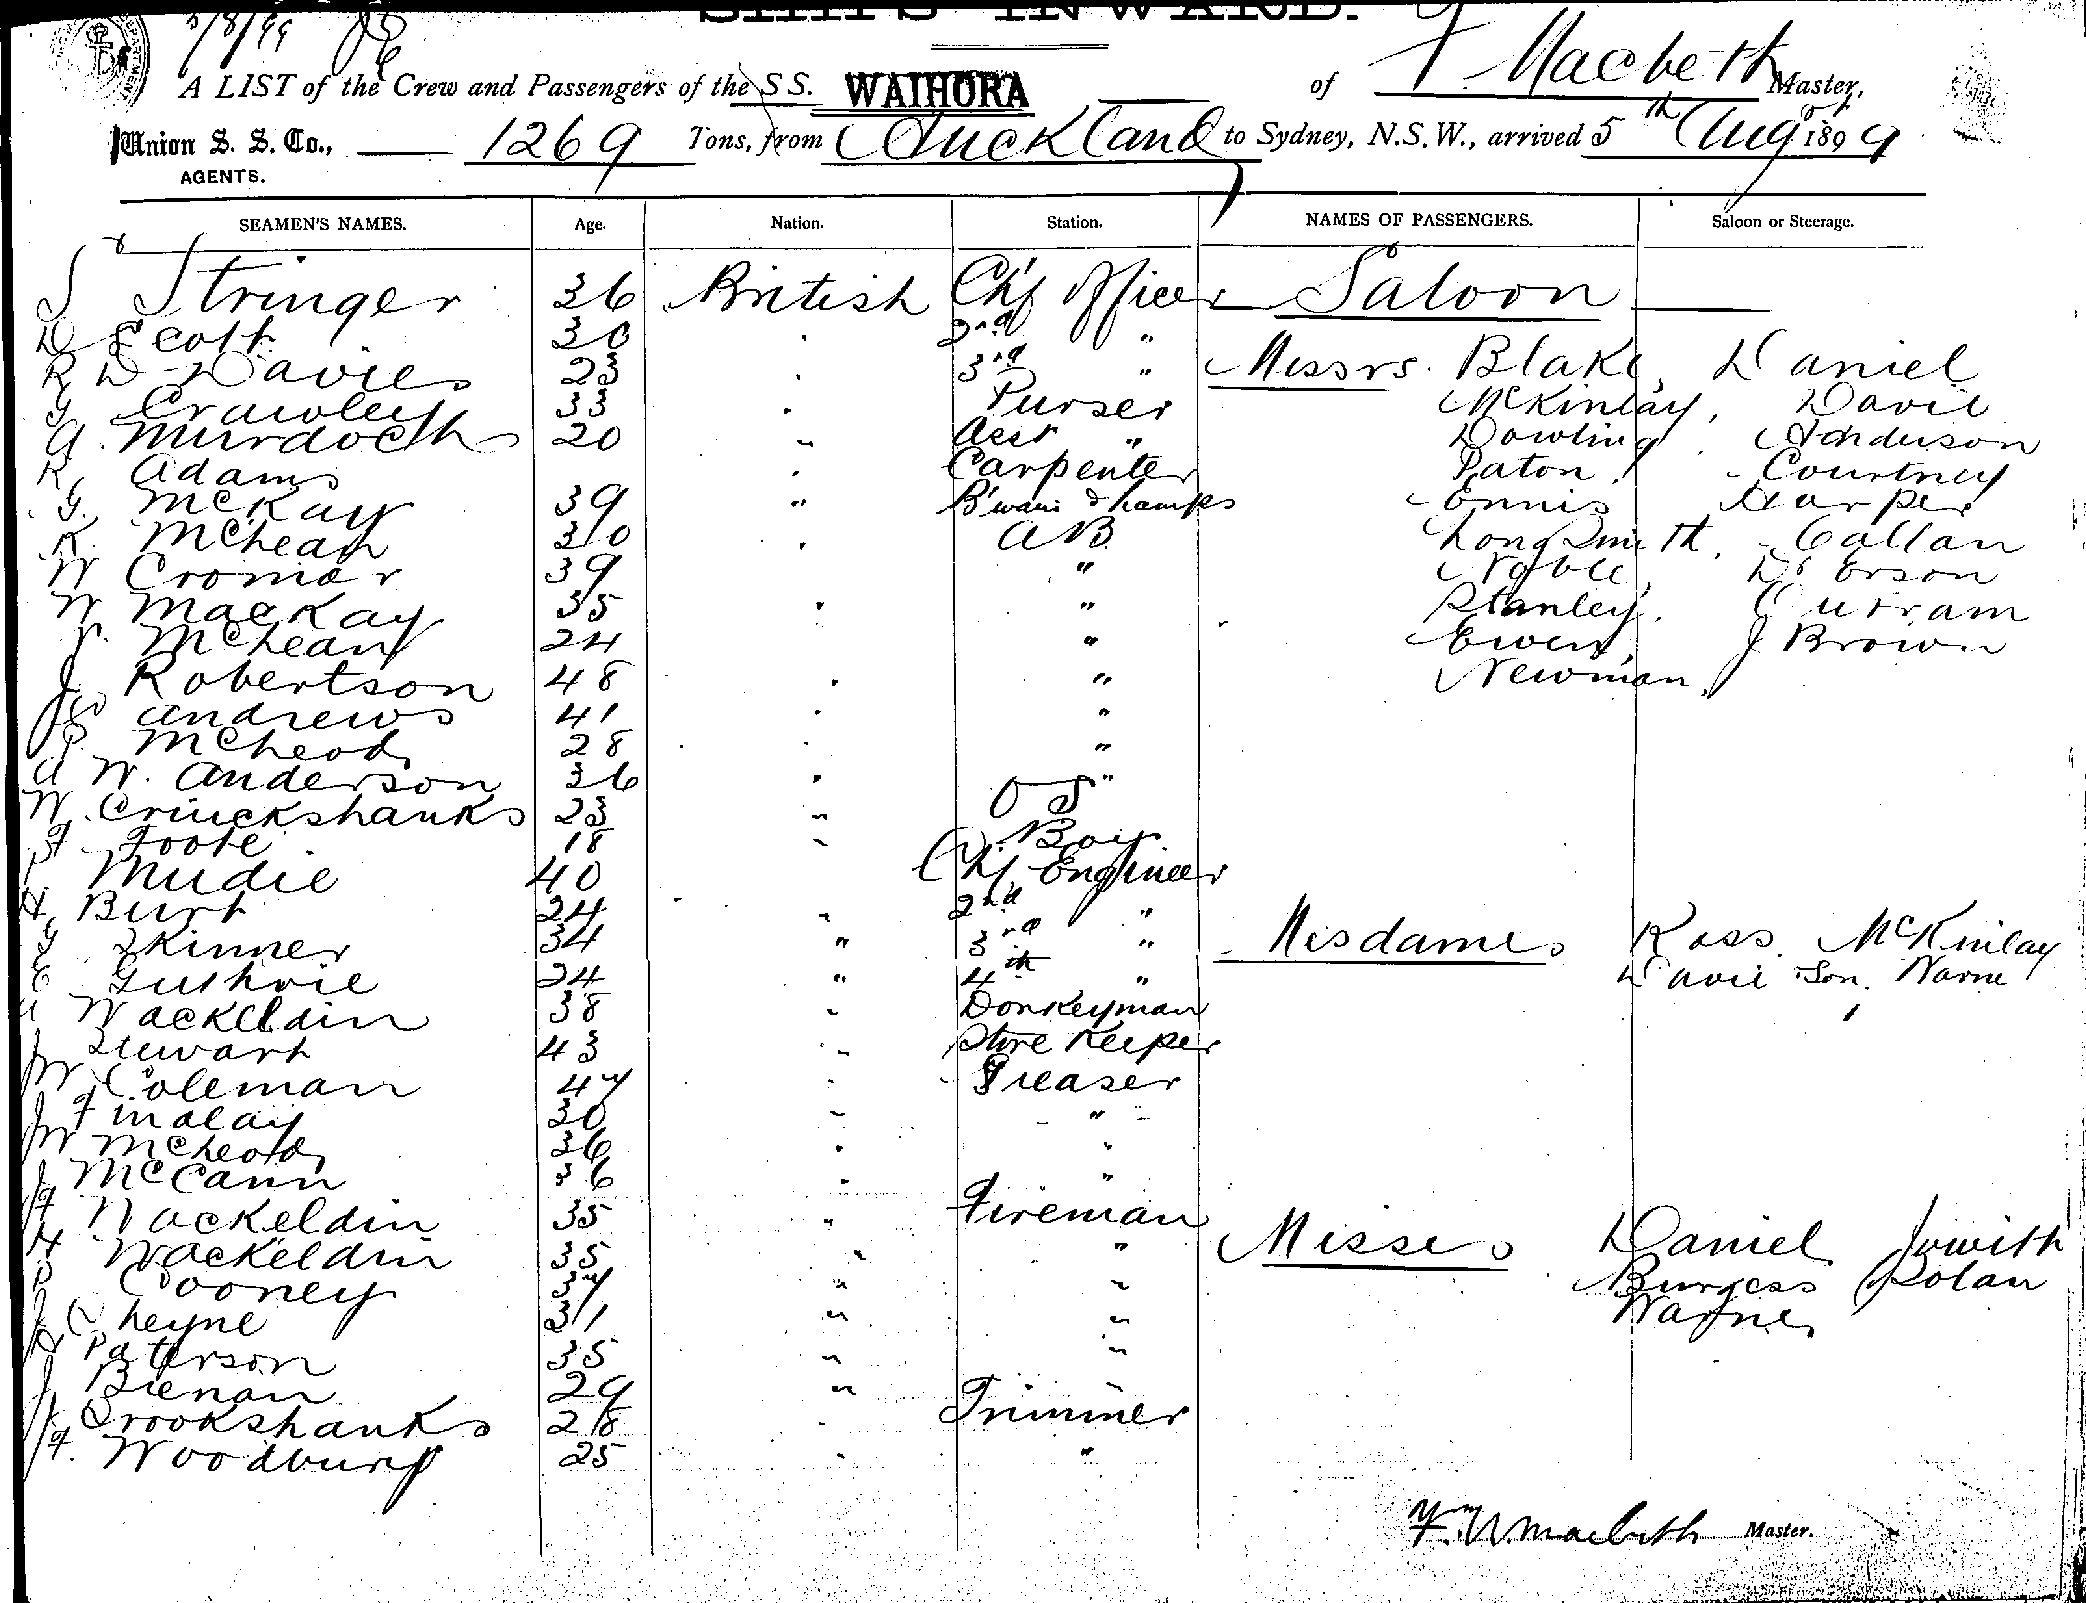 SHIPS INWARD.
5/8/99
A LIST of the Crew and Passengers of the S S. WAIHORA of F Macbeth Master,
Union S. S. Co., 1269 Tons, from Auckland to Sydney, N.S.W., arrived 5th Aug 1899
AGENTS.
SEAMEN'S NAMES. Age. Nation. Station. NAMES OF PASSENGERS. Saloon or Steerage.
S Stringer 36 British Chf Officer Saloon
D Scott 30 2nd "
R D Davies 23 3rd " Messrs. Blake, Daniel
G Crawley 33 Purser McKinlay, David
A. Murdoch 20 Asst " Dowling, Anderson
R. Adams Carpenter Paton, Courtney
G. McKay 39 " B'wain & Lamps Ennis Harper
K. McLean 30 AB Longsmith, Callan
W Cromar 39 " Noble,
W. MacKay 35 " Stanley. Outram
McLean 24 " Ewen, J Brown
J Robertson 48 " Newman,
Andrews 41 "
McLeod 28 "
A W. Anderson 36 "
W. Criuckshanks 23 " O S
Foote 18 " Boy
Mudie 40 Chf Engineer
H, Burt 24 " 2nd "
G Skinner 34 " 3rd " Mesdames Ross. McKinlay
E Guthrie 24 " 4th " David Son. Warne
A Wackeldin 38 " Donkeyman
Stewart 43 " Store Keeper
W Coleman 47 Greaser
J Finalay 30 " "
W McLeod 26 "
J McCann 36 "
Wackeldin 35 " Fireman
H Wackeldin 35 " " Misses Daniel Jowith
P Cooney 37 " " Burgess Dolan
J Cheyne 31 " " Warne
Paterson 35 " "
J Bienan 29 " "
Crookshanks 28 Trimmer
F. Woodbury 25 "
F. W Macbeth Master.